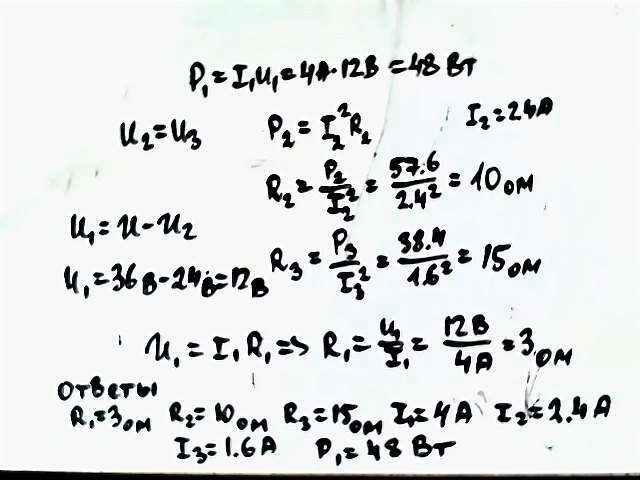 P₁=I₁U₁=4A·12В=48 Вт
U₂=U₃ P₂=I₂²R₂ I₂=2.4A
R₂=P₂/I₂²=57.6/2.4²=10 ом
U₁=U-U₂
U₁=36В-24В=12В R₃=P₃/I₃²=38.4/1.6²=15 ом
U₁=I₁R₁=>R₁=U₁/I₁=12В/4A=3 ом
ответы
R₁=3 ом R₂=10 ом R₃=15 ом I₁=4A I₂=2.4A
I₃=1.6A P₁=48 Вт